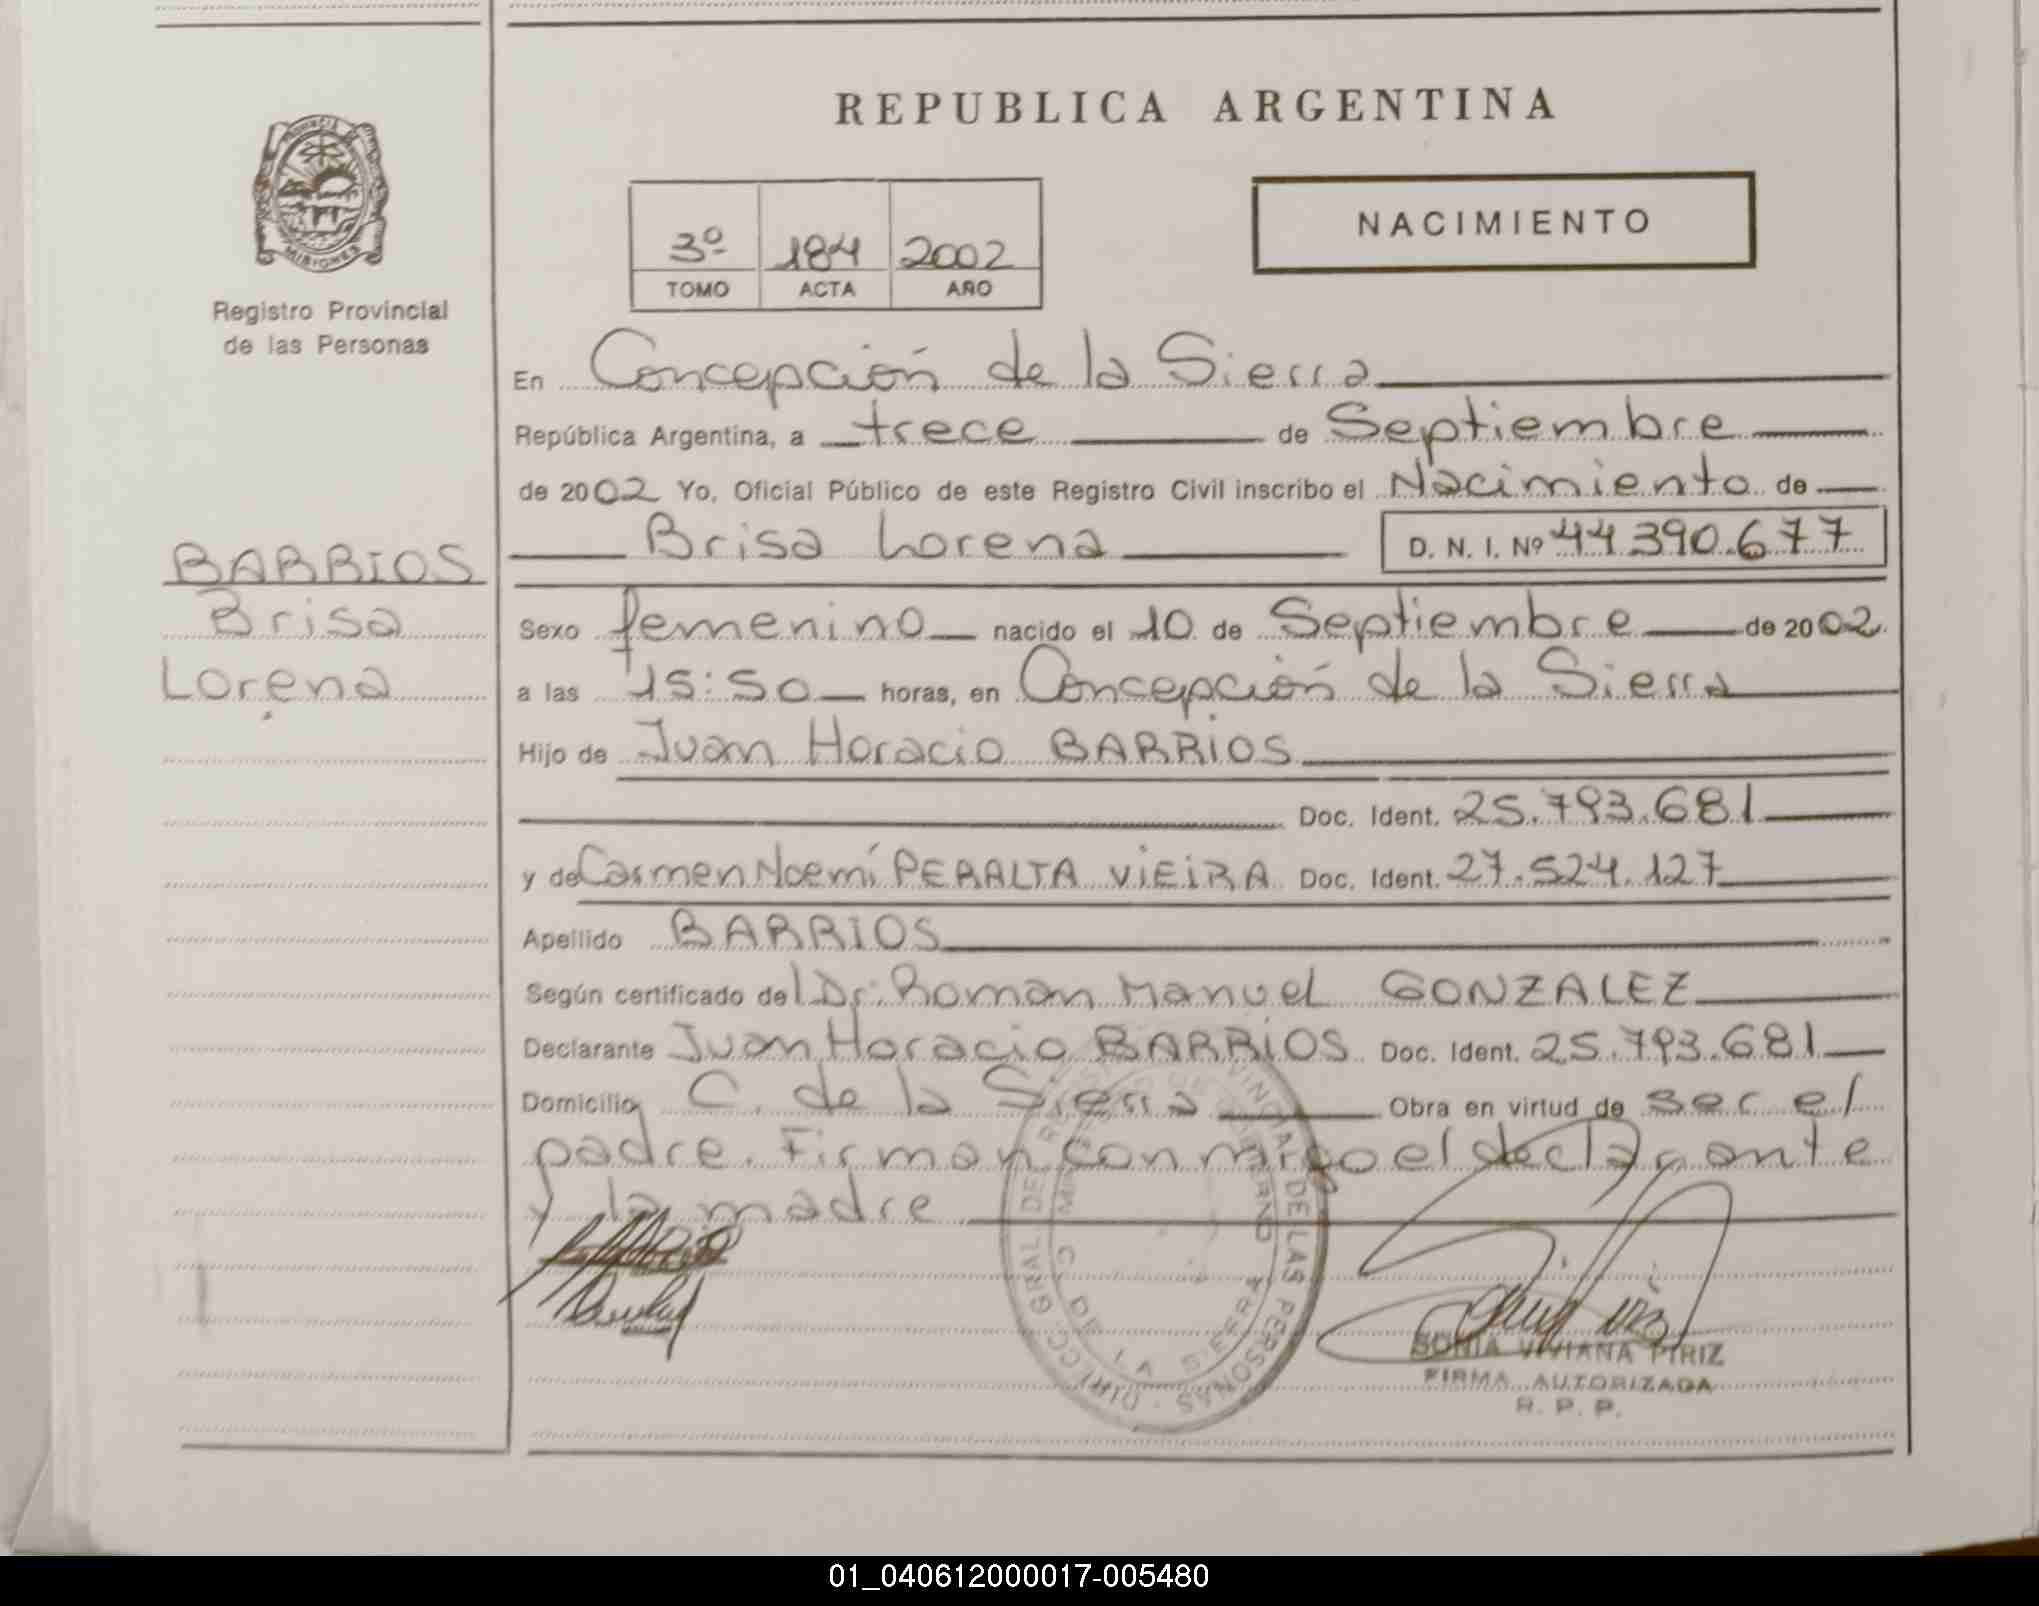 REPUBLICA ARGENTINA
PROVINCIA DE MISIONES
Registro Provincial
de las Personas
3º 184 2002
TOMO ACTA AÑO
NACIMIENTO
En Concepción de la Sierra
República Argentina, a trece de Septiembre
de 2002 Yo, Oficial Público de este Registro Civil inscribo el Nacimiento de
Brisa Lorena D. N. I. Nº 44.390.677
BARRIOS
Brisa
Lorena
Sexo femenino nacido el 10 de Septiembre de 2002
a las 15:50 horas, en Concepción de la Sierra
Hijo de Juan Horacio BARRIOS
Doc. Ident. 25.793.681
y de Carmen Noemí PERALTA VIEIRA Doc. Ident. 27.524.127
Apellido BARRIOS
Según certificado del Dr. Roman Manuel GONZALEZ
Declarante Juan Horacio BARRIOS Doc. Ident. 25.793.681
Domicilio C. de la Sierra Obra en virtud de ser el
padre. Firman conmigo el declarante
y la madre
DIRECC. GRAL. DEL REGISTRO PROVINCIAL DE LAS PERSONAS
C. DE LA SIERRA
SONIA VIVIANA PIRIZ
FIRMA AUTORIZADA
R. P. P.
01_040612000017-005480